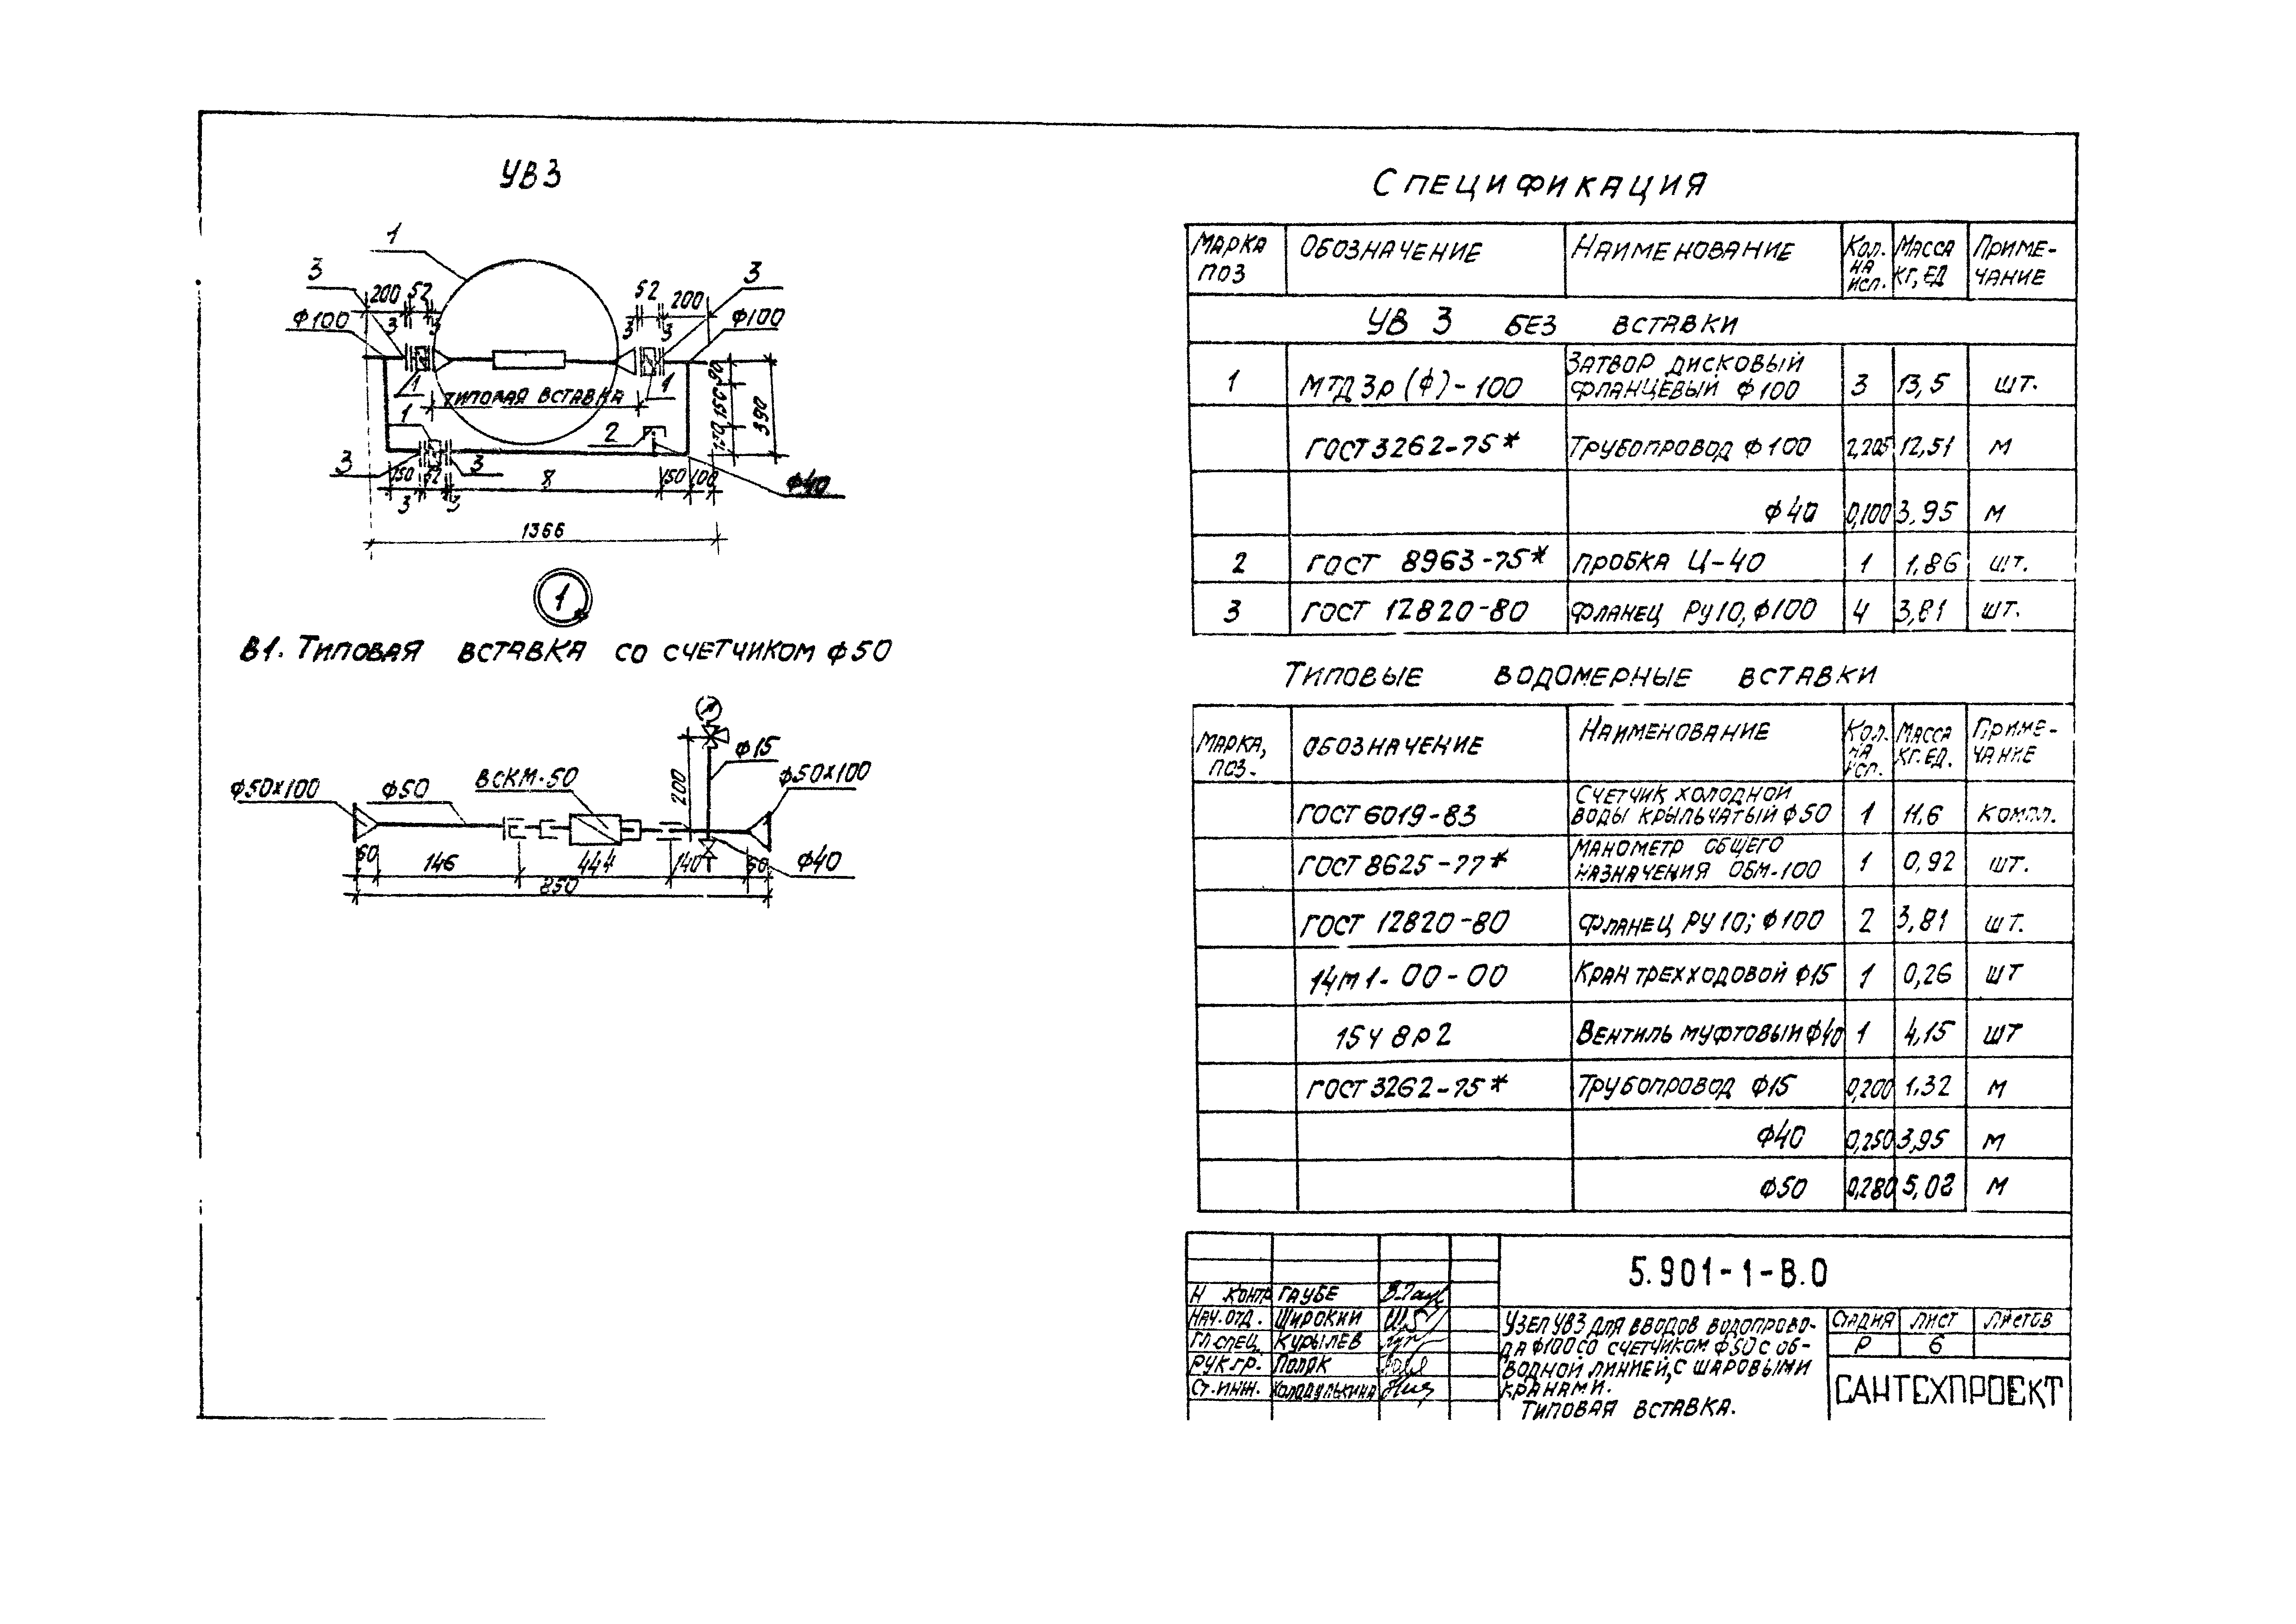 УВ3
1
3
3
200
52
52
200
Ф100
3
3
3
3
Ф100
1
1
ТИПОВАЯ ВСТАВКА
90
150
150
390
1
2
3
3
150
52
8
150
100
Ф40
3
3
1366
1
В1. ТИПОВАЯ ВСТАВКА СО СЧЕТЧИКОМ Ф50
Ф15
200
ВСКМ-50
Ф50х100
Ф50х100
Ф50
60
146
444
140
60
Ф40
850
СПЕЦИФИКАЦИЯ
МАРКА ПОЗ ОБОЗНАЧЕНИЕ НАИМЕНОВАНИЕ КОЛ. НА ИСП. МАССА КГ, ЕД ПРИМЕ-ЧАНИЕ
УВ 3 БЕЗ ВСТАВКИ
1 МТД3р(Ф)-100 ЗАТВОР ДИСКОВЫЙ ФЛАНЦЕВЫЙ Ф100 3 13,5 ШТ.
ГОСТ 3262-75* ТРУБОПРОВОД Ф100 2,205 12,51 М
Ф40 0,100 3,95 М
2 ГОСТ 8963-75* ПРОБКА Ц-40 1 1,86 ШТ.
3 ГОСТ 12820-80 ФЛАНЕЦ РУ10, Ф100 4 3,81 ШТ.
ТИПОВЫЕ ВОДОМЕРНЫЕ ВСТАВКИ
МАРКА, ПОЗ. ОБОЗНАЧЕНИЕ НАИМЕНОВАНИЕ КОЛ. НА ИСП. МАССА КГ. ЕД. ПРИМЕ-ЧАНИЕ
ГОСТ 6019-83 СЧЕТЧИК ХОЛОДНОЙ ВОДЫ КРЫЛЬЧАТЫЙ Ф50 1 11,6 КОМПЛ.
ГОСТ 8625-77* МАНОМЕТР ОБЩЕГО НАЗНАЧЕНИЯ ОБМ-100 1 0,92 ШТ.
ГОСТ 12820-80 ФЛАНЕЦ РУ10; Ф100 2 3,81 ШТ.
14М1-00-00 КРАН ТРЕХХОДОВОЙ Ф15 1 0,26 ШТ
15ч 8р2 ВЕНТИЛЬ МУФТОВЫЙ Ф40 1 4,15 ШТ
ГОСТ 3262-75* ТРУБОПРОВОД Ф15 0,200 1,32 М
Ф40 0,250 3,95 М
Ф50 0,280 5,02 М
5.901-1-В.0
Н КОНТР ГАУБЕ
НАЧ. ОТД. ШИРОКИЙ
ГЛ СПЕЦ. КУРЫЛЕВ
РУК ГР. ПОЛЯК
СТ. ИНЖ. ХОЛОДУЛЬКИНА
УЗЕЛ УВ3 ДЛЯ ВВОДОВ ВОДОПРОВО-
ДА Ф100 СО СЧЕТЧИКОМ Ф50 С ОБ-
ВОДНОЙ ЛИНИЕЙ, С ШАРОВЫМИ
КРАНАМИ.
ТИПОВАЯ ВСТАВКА.
СТАДИЯ ЛИСТ ЛИСТОВ
Р 6
САНТЕХПРОЕКТ